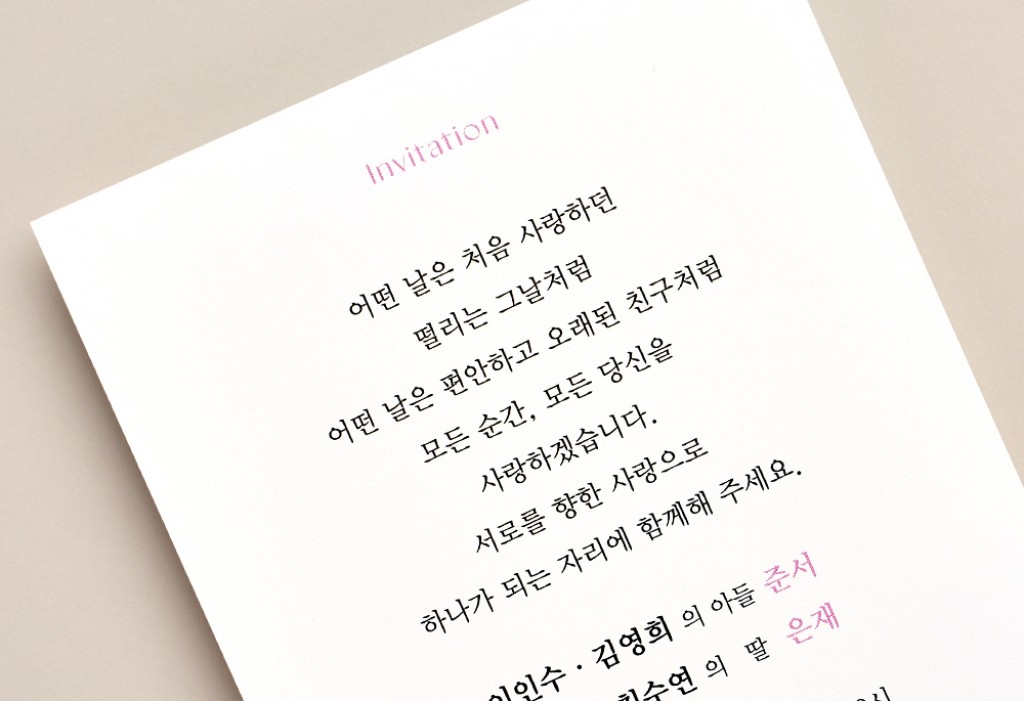 Invitation
어떤 날은 처음 사랑하던
떨리는 그날처럼
어떤 날은 편안하고 오래된 친구처럼
모든 순간, 모든 당신을
사랑하겠습니다.
서로를 향한 사랑으로
하나가 되는 자리에 함께해 주세요.
이인수 · 김영희 의 아들 준서
최수연 의 딸 은재